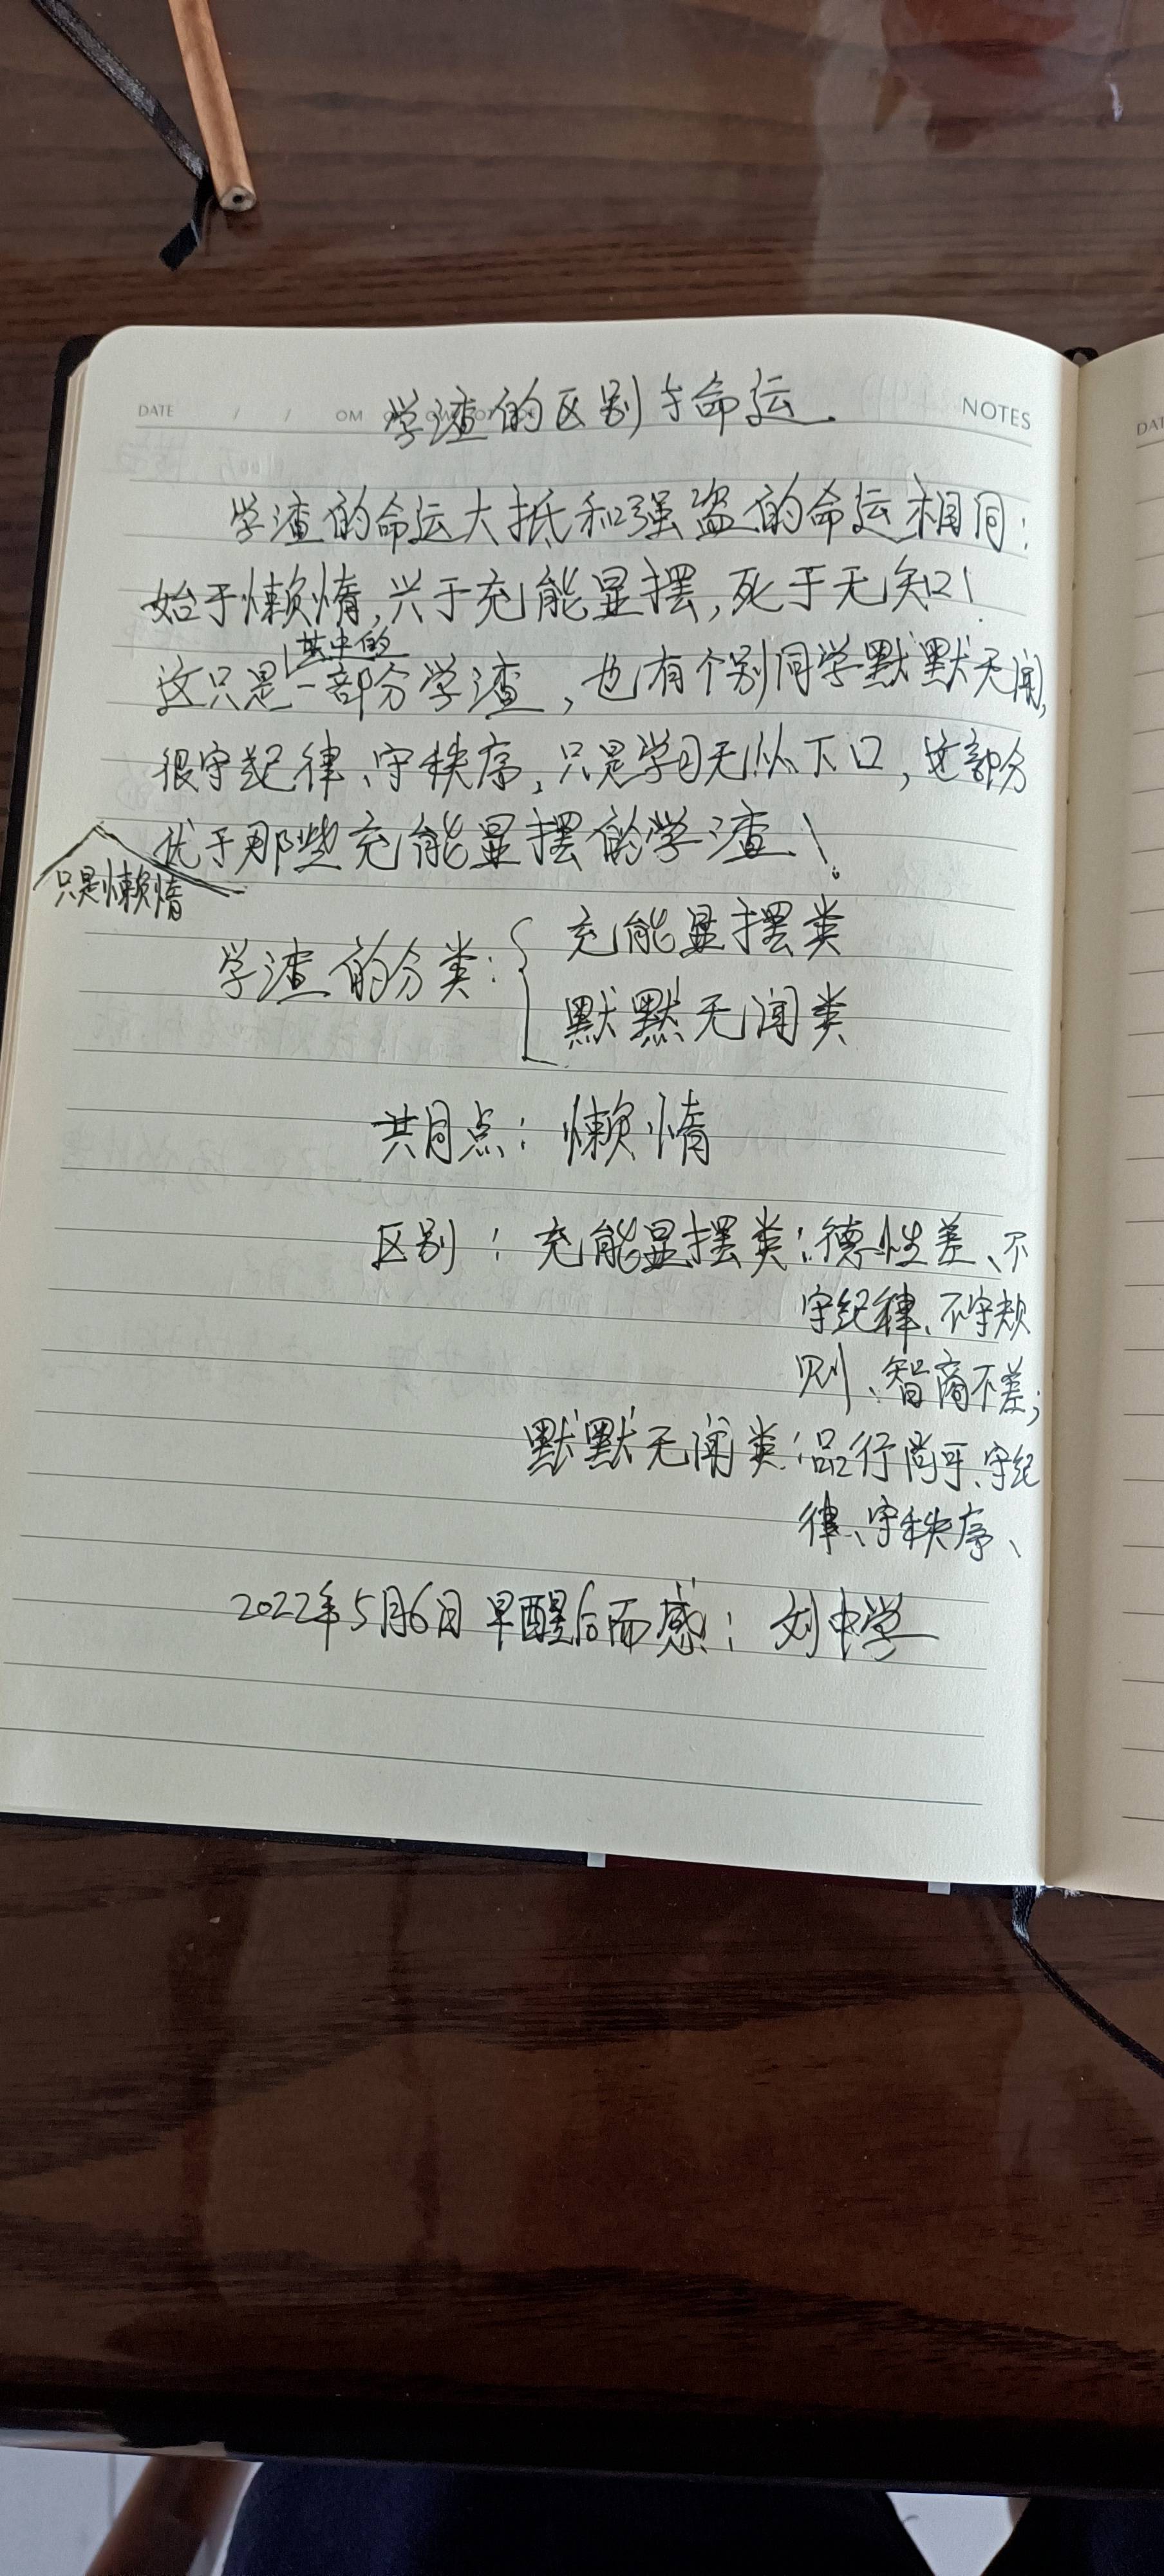 DATE / / NOTES
学渣的区别与命运.
学渣的命运大抵和强盗的命运相同:
始于懒惰,兴于充能显摆,死于无知!
其中的
这只是一部分学渣,也有个别同学默默无闻,
很守纪律、守秩序,只是学习无从下口,这部分
优于那些充能显摆的学渣!
只是懒惰
学渣的分类:
充能显摆类
默默无闻类
共同点:懒惰
区别:充能显摆类:德性差、不
守纪律、不守规
则、智商不差;
默默无闻类:品行尚可、守纪
律、守秩序、
2022年5月6日早醒后而感:刘中学
DAT